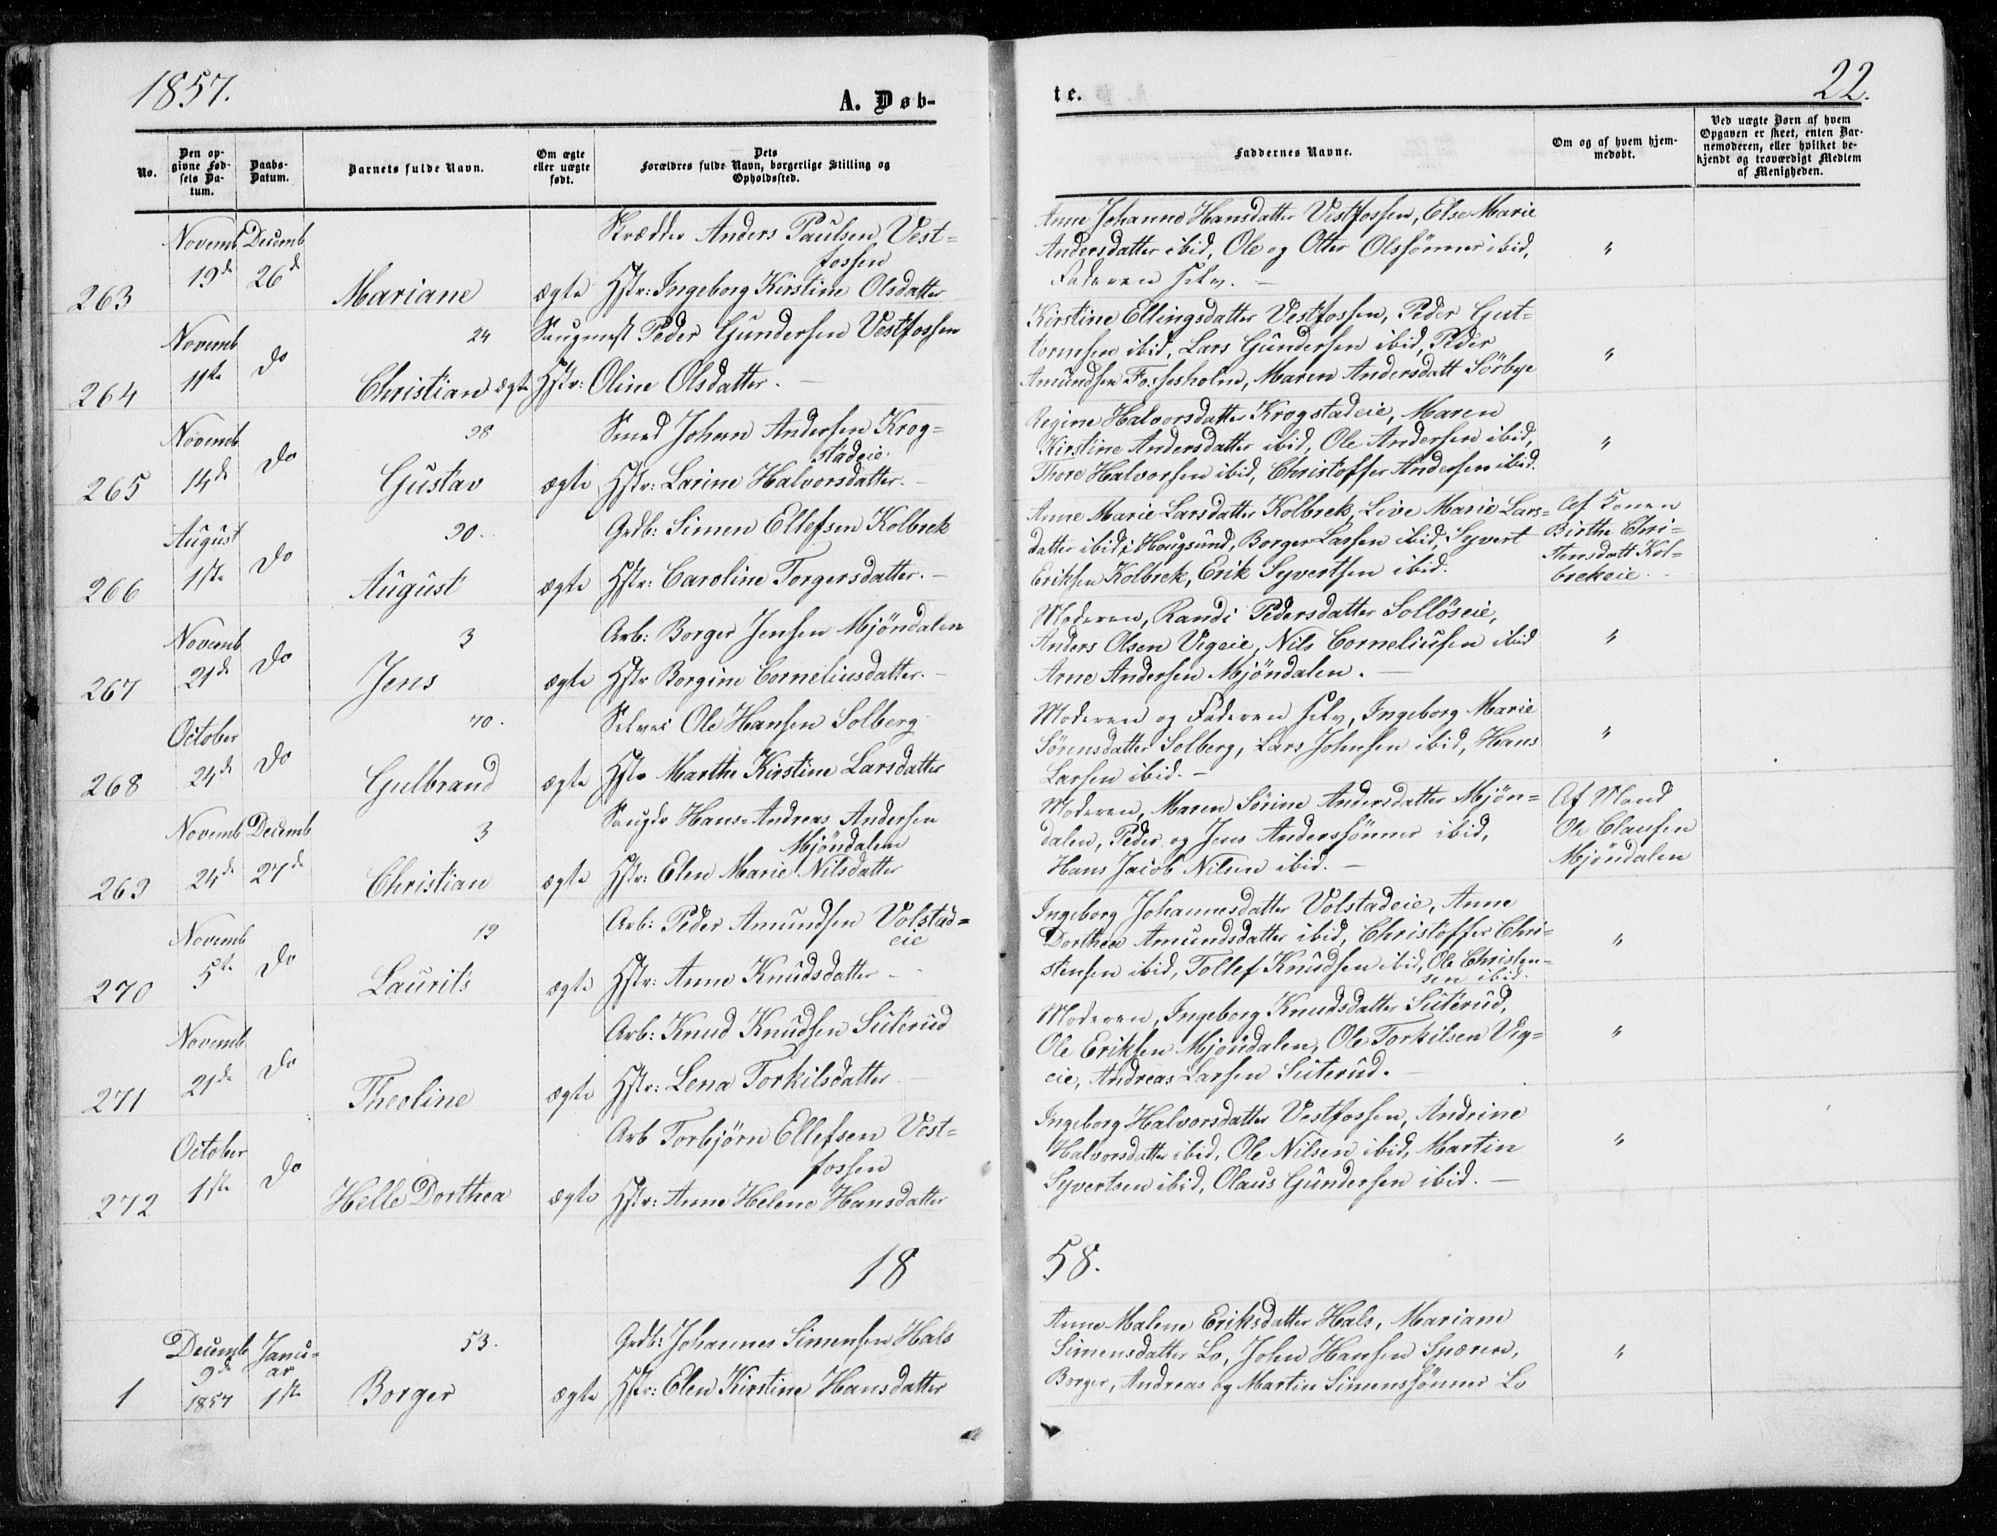 1857.
A. Døb-
te.
22.
No.
Den op-
givne Fød-
sels Da-
tum.
Daabs-
Datum.
Barnets fulde Navn.
Om ægte
eller uægte
født.
Dets
Forældres fulde Navn, borgerlige Stilling og
Opholdssted.
Faddernes Navne.
Om og af hvem hjem-
medøbt.
Ved uægte Børn af hvem
Opgaven er skeet, enten Bar-
nemoderen, eller hvilket be-
kjendt og troværdigt Medlem
af Menigheden.
Novemb Decemb
19de 26de
263 Mariane ægte
Skrædder Anders Paulsen Vest=
fossen
Hstr: Ingeborg Kirstine Olsdatter
Anne Johanne Hansdatter Vestfossen, Else Marie
Andersdatter ibid, Ole og Otter Olssønner ibid,
Faderen selv. — "
Novemb
11te do
24
264 Christian ægte
Saugmest Peder Gundersen Vestfossen
Hstr: Oline Olsdatter. —
Kirstine Ellingsdatter Vestfossen, Peder Gut-
tormsen ibid, Lars Gundersen ibid, Peder
Amundsen Fossesholm, Maren Andersdatt Sörbye "
Novemb
14de do
28
265 Gustav ægte
Smed Johan Andersen Krog=
stadeie
Hstr: Larine Halvorsdatter. —
Regine Halvorsdatter Krogstadeie, Maren
Kirstine Andersdatter ibid, Ole Andersen ibid,
Thore Halvorsen ibid, Christoffer Andersen ibid. "
August
1ste do
30.
266 August ægte
Grdb: Simen Ellefsen Kolbrek
Hstr: Caroline Torgersdatter. —
Anne Marie Larsdatter Kolbrek, Live Marie Lars=
datter ibid, i Hougsund, Borger Larsen ibid, Syvert
Eriksen Kolbrek, Erik Syvertsen ibid.
Af Konen
Birthe Chri=
stensdatt Kol=
brekeie. —
Novemb
21de do
3
267 Jens ægte
Arb: Borger Jensen Mjöndalen
Hstr Borgine Corneliusdatter. —
Moderen, Randi Pedersdatter Sollöseie,
Anders Olsen Vigeie, Nils Corneliusen ibid
Arne Andersen Mjöndalen. — "
October
24de do
70.
268 Gulbrand ægte
Selvei Ole Hansen Solberg
Hstr Marthe Kirstine Larsdatter
Moderen og Faderen selv, Ingeborg Marie
Sörensdatter Solberg, Lars Johnsen ibid, Hans
Larsen ibid. — "
Novemb Decemb
24de 27de
3
269 Christian ægte
Saugdr Hans Andreas Andersen
Mjöndalen
Hstr: Elen Marie Nilsdatter
Moderen, Maren Sörine Andersdatter Mjön=
dalen, Peder og Jens Anderssønner ibid,
Hans Jacob Nilsen ibid. —
Af Mand
Ole Clausen
Mjöndalen
Novemb
5te do
19
270 Laurits ægte
Arb: Peder Amundsen Volstad=
eie
Hstr: Anne Knudsdatter —
Ingeborg Johannesdatter Volstadeie, Anne
Dorthea Amundsdatter ibid, Christoffer Chri=
stensen ibid, Tollef Knudsen ibid, Ole Christen-
sen ibid. "
Novemb
21de do
271 Theoline ægte
Arb: Knud Knudsen Suterud
Hstr: Lena Torkilsdatter
Moderen, Ingeborg Knudsdatter Suterud,
Ole Eriksen Mjöndalen, Ole Torkilsen Vig=
eie, Andreas Larsen Suterud. — "
October
1ste do
272 Helle Dorthea ægte
Arb Torbjörn Ellefsen Vest=
fossen
Hstr: Anne Helene Hansdatter
Ingeborg Halvorsdatter Vestfossen, Andrine
Halvorsdatter ibid, Ole Nilsen ibid, Martin
Syvertsen ibid, Olaus Gundersen ibid. — "
18
58.
Decemb Janu-
9de ar
1857 1ste
53.
1 Borger ægte
Grdb: Johannes Simensen Hals
Hstr: Elen Kirstine Hansdatter
Anne Malene Eriksdatter Hals, Mariane
Simensdatter Lo, John Hansen Speren,
Borger, Andreas og Martin Simenssönner Lo "